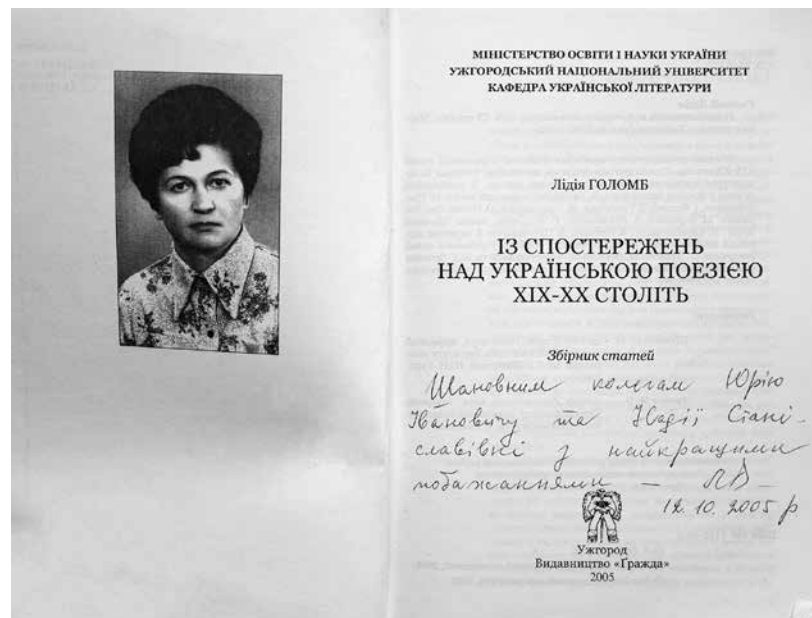 МІНІСТЕРСТВО ОСВІТИ І НАУКИ УКРАЇНИ
УЖГОРОДСЬКИЙ НАЦІОНАЛЬНИЙ УНІВЕРСИТЕТ
КАФЕДРА УКРАЇНСЬКОЇ ЛІТЕРАТУРИ
Лідія ГОЛОМБ
ІЗ СПОСТЕРЕЖЕНЬ
НАД УКРАЇНСЬКОЮ ПОЕЗІЄЮ
ХІХ-ХХ СТОЛІТЬ
Збірник статей
Шановним колегам Юрію
Івановичу та Надії Стані-
славівні з найкращими
побажаннями —
12.10.2005 р
Ужгород
Видавництво «Ґражда»
2005